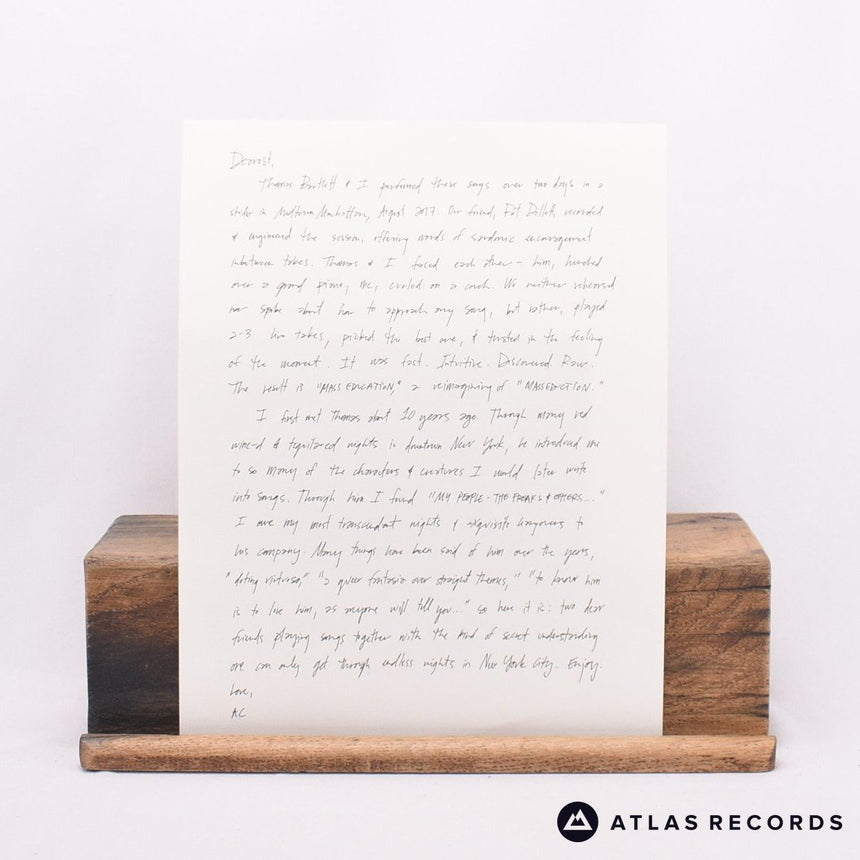 Dearest,
Thomas Bartlett & I performed these songs over two days in a
studio in Midtown Manhattan, August 2017. Our friend, Pat Dillett, recorded
& engineered the session, offering words of sardonic encouragement
inbetween takes. Thomas & I faced each other - him, hunched
over a grand piano, me, curled on a couch. We neither rehearsed
nor spoke about how to approach any song, but rather, played
2-3 live takes, picked the best one, & trusted in the feeling
of the moment. It was fast. Intuitive. Discovered. Raw.
The result is "MASSEDUCATION," a reimagining of "MASSEDUCTION."
I first met Thomas about 10 years ago. Through many red
wine-d & tequila-ed nights in downtown New York, he introduced me
to so many of the characters & creatures I would later write
into songs. Through him I found "MY PEOPLE - THE FREAKS & OTHERS..."
I owe my most transcendant nights & exquisite hangovers to
his company. Many things have been said of him over the years,
"doting virtuoso," "a queer fantasia over straight themes," "to know him
is to love him, as anyone will tell you..." so here it is: two dear
friends playing songs together with the kind of secret understanding
one can only get through endless nights in New York City. Enjoy.
Love,
AC
ATLAS RECORDS